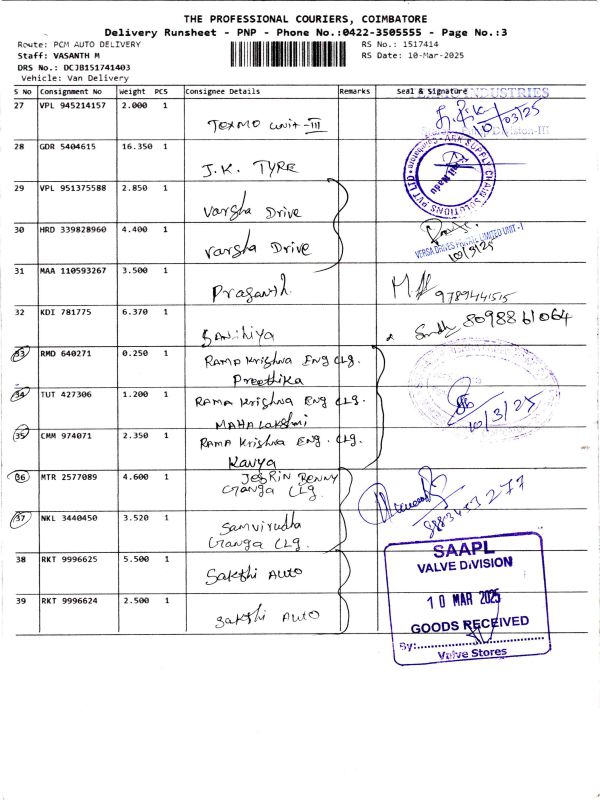 THE PROFESSIONAL COURIERS, COIMBATORE
Delivery Runsheet - PNP - Phone No.:0422-3505555 - Page No.:3
Route: PCM AUTO DELIVERY RS No.: 1517414
Staff: VASANTH M RS Date: 10-Mar-2025
DRS No.: DCJB151741403
Vehicle: Van Delivery
S No Consignment No Weight PCS Consignee Details Remarks Seal & Signature
27 VPL 945214157 2.000 1 Texmo Unit-III
INDUSTRIES
10/03/25
Division-III
28 GDR 5404615 16.350 1 J.K. TYRE
ARK SUPPLY CHAIN SOLUTIONS PVT LTD
29 VPL 951375588 2.850 1 Varsha Drive
30 HRD 339828960 4.400 1 Varsha Drive
VERSA DRIVES PRIVATE LIMITED UNIT-1
10/3/25
31 MAA 110593267 3.500 1 Prasanth.
9789441515
32 KDI 781775 6.370 1
8098861064
33 RMD 640271 0.250 1 Rama Krishna Eng Clg.
Preethika
34 TUT 427306 1.200 1 Rama Krishna Eng Clg.
MAHA Lakshmi
10/3/25
35 CMM 974071 2.350 1 Rama Krishna Eng. Clg.
Kavya
36 MTR 2577089 4.600 1 JESRIN BENNY
Ganga Clg.
37 NKL 3440450 3.520 1 Samvirudha
Ganga Clg.
38 RKT 9996625 5.500 1 Sakthi Auto
39 RKT 9996624 2.500 1 Sakthi Auto
SAAPL
VALVE DIVISION
10 MAR 2025
GOODS RECEIVED
By:
Valve Stores